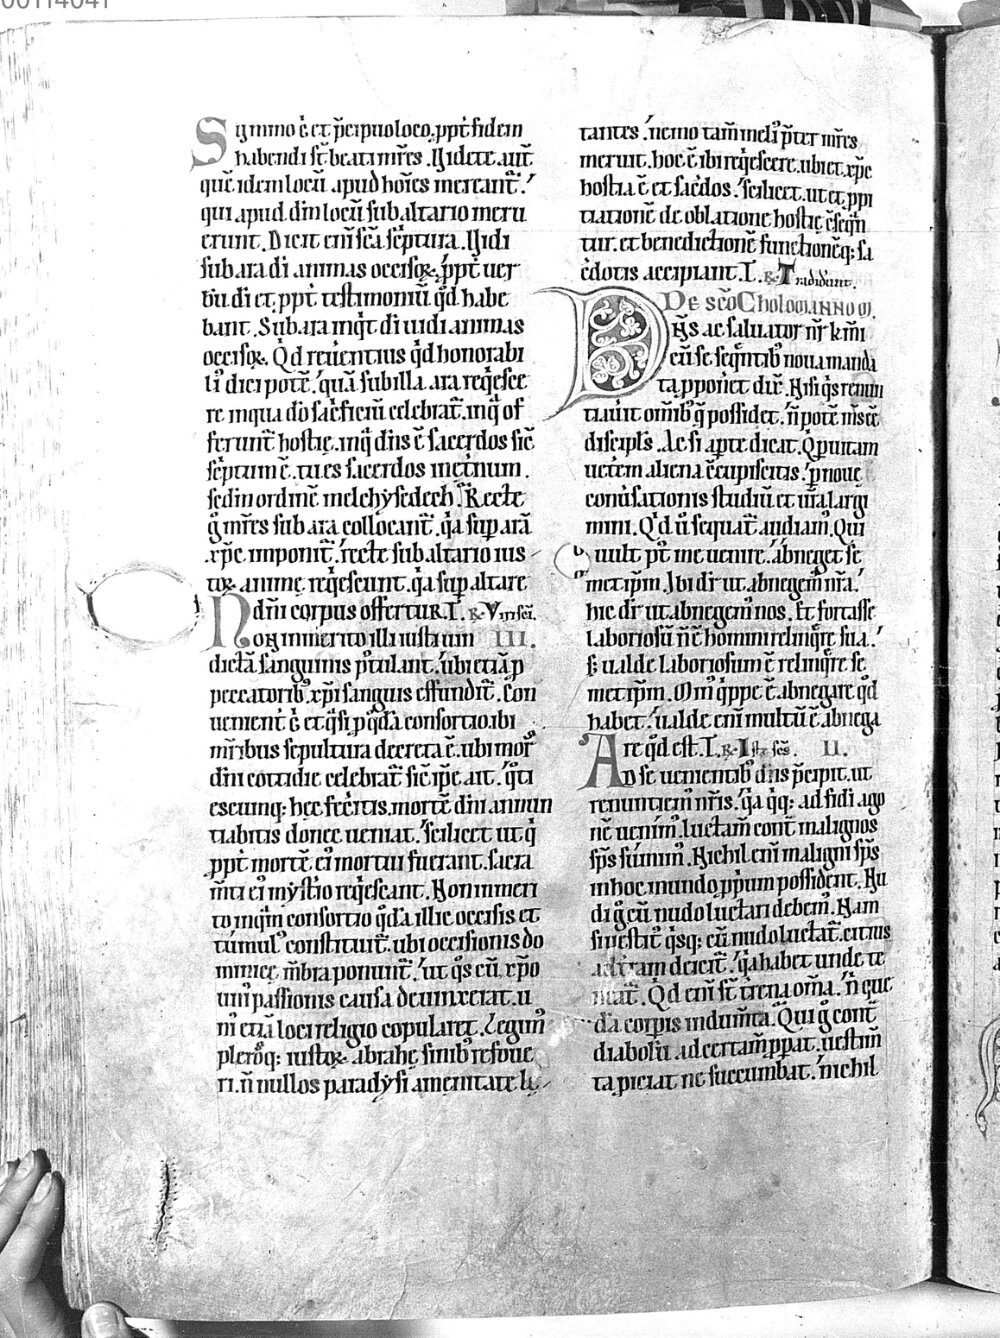 00114041
Sũmmo ẽ et p̃cipuo loco. ppt̃ fidem
habendi st̃ beati mr̃es. Uidete aut̃
quẽ idem locũ apud hoĩes mereant̃.
qui apud dm̃ locũ sub altario meru
erunt. Dicit eni sc̃a sc̃ptura. Uidi
sub ara di animas occisoꝝ. ppt̃ uer
bũ di et ppt̃ testimoniũ qd̃ habe
bant. Sub ara inqt̃ di uidi animas
occisoꝝ. Qd reuentius qd honorabi
li dici potẽ. quã sub illa ara reqesce
re in qua dõ sac̃ficiũ celebrat̃. in q̃ of
ferunt̃ hostie. in q̃ dñs ẽ sacerdos sic̃
sc̃ptum ẽ. tu es sacerdos in et̃num.
sedm ordinẽ melchysedech. Recte
g̊ mr̃es sub ara collocant̃. qa sup arã
xp̃c imponit̃. recte sub altario ius
toꝝ anime reqescunt. qa sup altare
dñi corpus offertur. I. ℟. Vir sc̃i.
Non inmerito illi iustium III.
dictã sanguinis p̃tulant. ubi etiã p
peccatorib; xp̃i sanguis effundit̃. Con
uenient̃ g̊ et qsi p qda consortio ibi
mr̃ibus sepultura decreta ẽ. ubi mors
dñi cottidie celebrat̃ sic̃ ip̃e ait. qti
escumq: hec fec̃itis. mortẽ dñi annun
tiabitis donec ueniat. scilicet ut q̃
ppt̃ mortẽ ei mortui fuerant. sacra
m̃ti ei mystio reqescant. Non inmeri
to inqm̃ consortio qda illic occisis et
tumul᷒ constituit̃. ubi occisionis do
minice m̃bra ponunt̃. ut qs cũ xp̃o
uni passionis causa deuinxerat. u
ni etiã loci religio copularet. Legim᷒
pleroq: iustoꝝ abrahe sinib; refoue
ri. ñ nullos paradysi amenitate le
tantes. nemo tam̃ meli᷒ p̃ter mr̃es
meruit. hoc ẽ ibi reqescere. ubi et xp̃c
hostia ẽ et sac̃dos. scilicet. ut et ppi
tiationẽ de oblatione hostie c̃seqn̄
tur. et benedictionẽ functionẽq: sa
c̃dotis accipiant. I. ℟. Tradiderunt.
DE sc̃o Cholomanno m̃.
Dñs ac saluator nr̃ kmi
cũ se seqntib; noua manda
ta pponet dix̃. Nisi qs renun
tiauit om̃ib; q̃ possidet. ñ potẽ m̃s eẽ
discipls̃. Ac si apte dicat. Qui p uitam
uet̃em aliena c̃cupiscitis. p noue
conũsationis studiũ et ur̃a largi
mini. Qd ũ sequat̃ audiam᷒. Qui
uult pt̃ me uenire. abneget se
metip̃m. Ibi dr̃ ut abnegem᷒ nr̃a.
hic dr̃ ut abnegem᷒ nos. Et fortasse
laboriosũ ñ ẽ homini relinqre sua.
s; ualde laboriosum ẽ relinqre se
metip̃m. Min᷒ qppe ẽ abnegare qd
habet. ualde eni multũ ẽ abnega
re qd est. I. ℟. Iste sc̃s. II.
Ad se uenientib; dñs p̃cipit. ut
renuntiem᷒ nr̃is. qa qq: ad fidi ago
nẽ uenim᷒. luctam̃ cont̃ malignos
sp̃s sumim᷒. Nichil eni maligni sp̃s
in hoc mundo pprium possident. Nu
di g̊ cũ nudo luctari debem᷒. Nam
si uestit᷒ qsq: cũ nudo luctat̃. citius
ad t̃ram deicit̃. qa habet unde te
neat̃. Qd eni st̃ t̃rena om̃a. ñ que
dã corpis indum̃ta. Qui g̊ cont̃
diabolũ ad certam̃ ppat. uestim̃
ta piciat ne succumbat. nichil